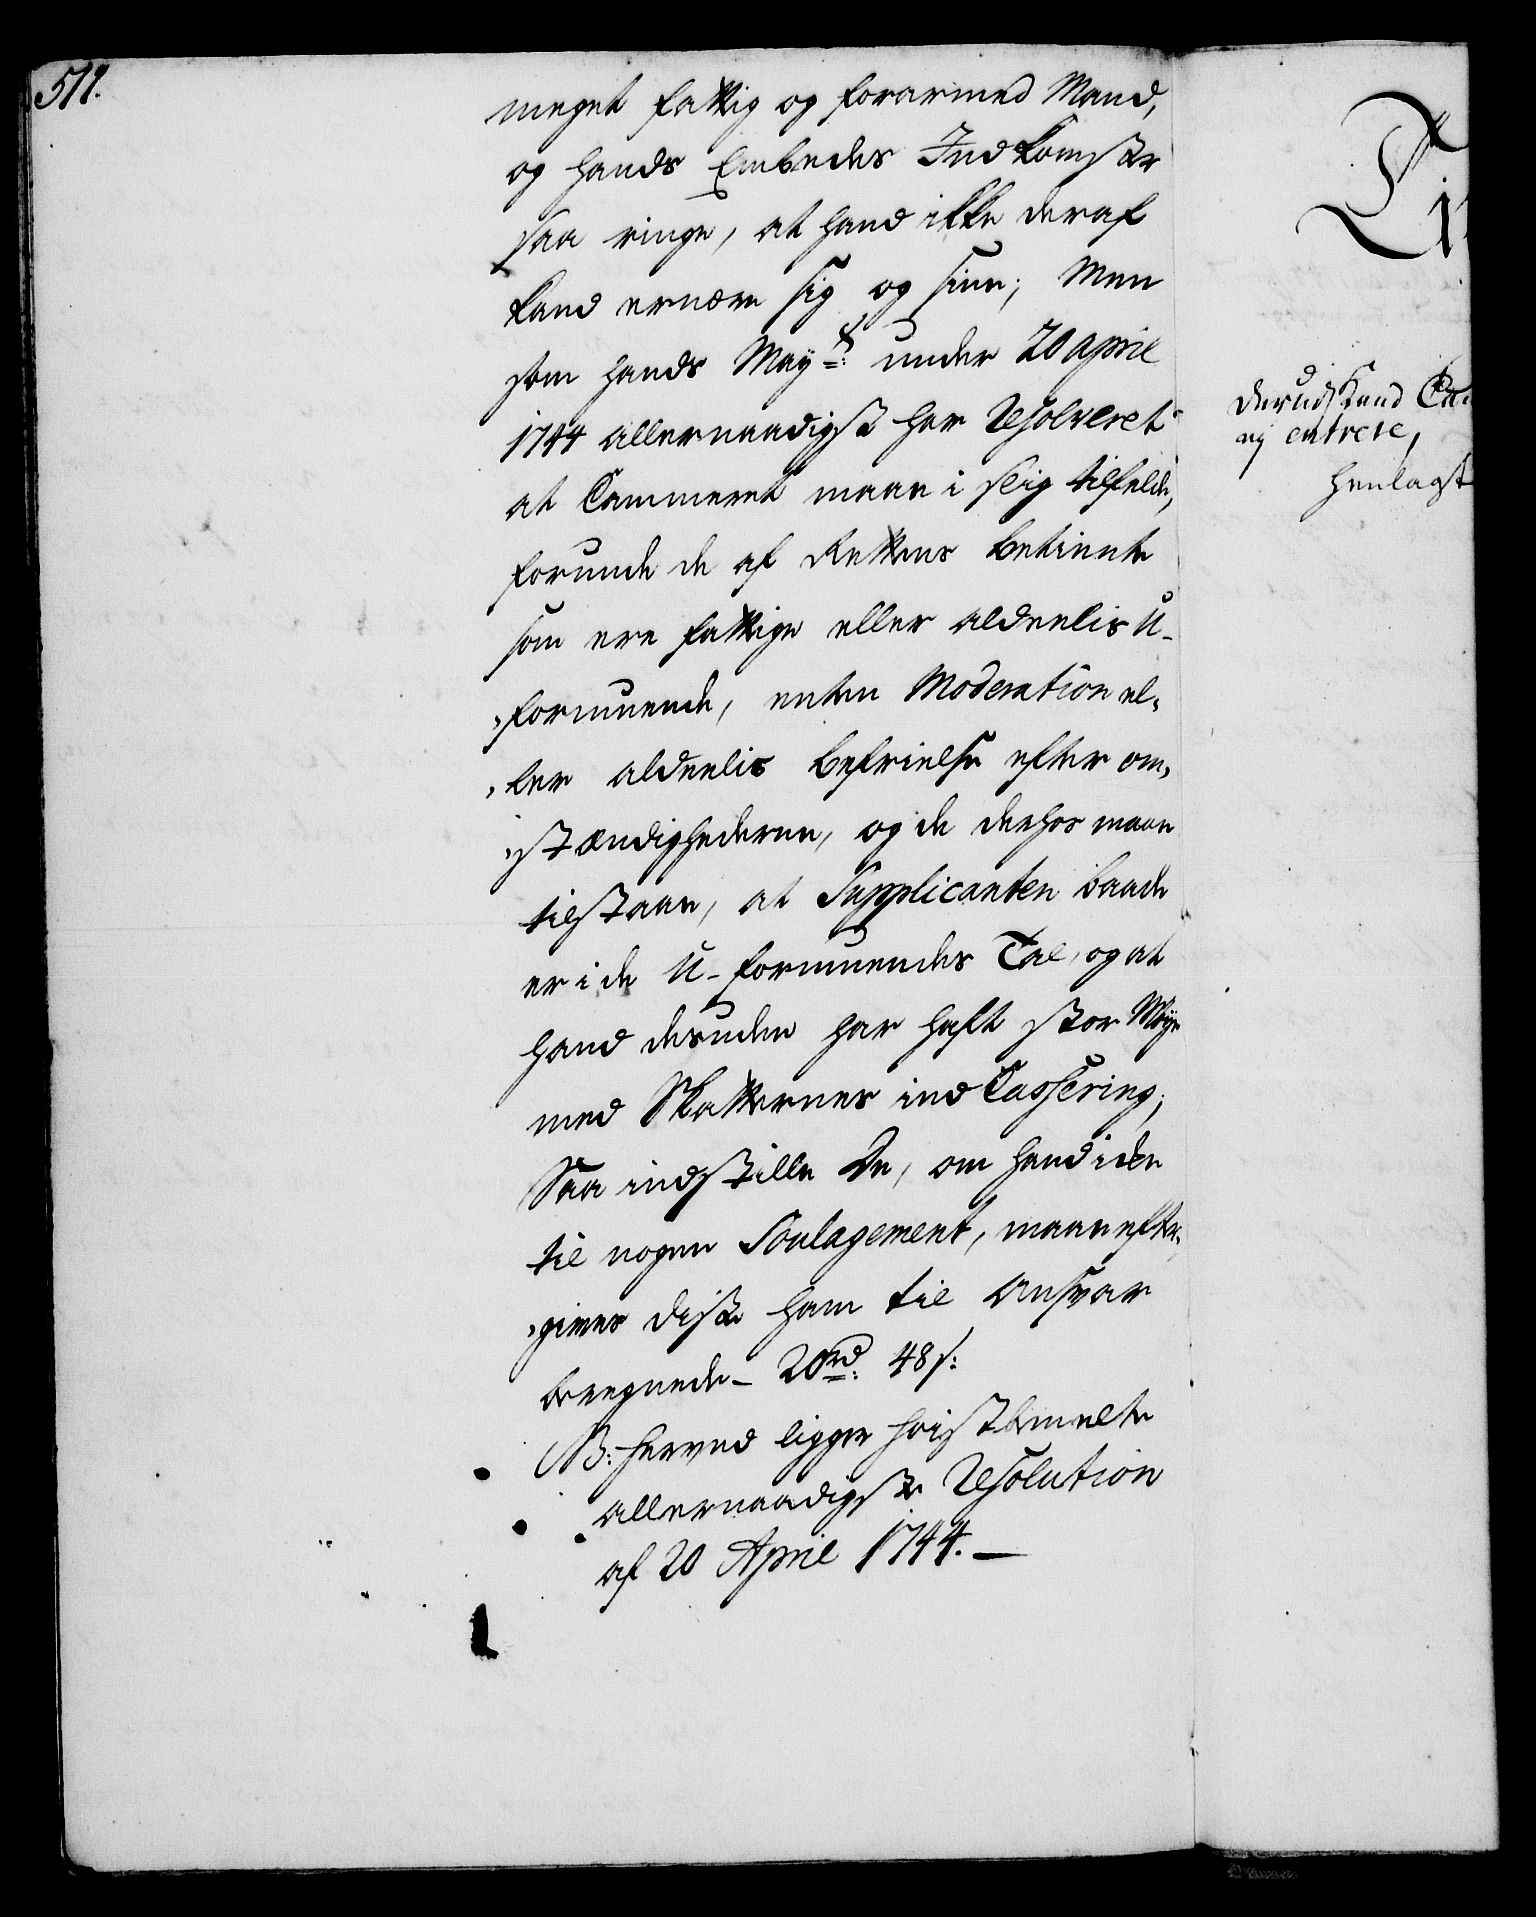 511.
meget fattig og forarmed Mand,
og hands Embedes Indkomster
saa ringe, at hand ikke deraf
kand ernære sig og sine; Men
som hands Mayts: under 20 april
1744 allernaadigst har Resolveret
at Cammeret maae i slig tilfelde,
forunde de af Rettens betiente
som ere fattige eller aldeelis U-
formuende, enten Moderation el,
ler aldeelis befrielse efter om,
stændighederne, og de derhos maae
tilstaae, at Supplicanten baade
er i de U-formuendes Tal, og at
hand desuden har haft stor Møye
med Skatternes ind Cassering;
Saa indstille De, om hand iden
til nogen Soulagement, maae efter,
gives disse ham til Ansvar
beregnede - 20rd: 48s:
NB: herved ligger høistbemelte
allernaadigste Resolution
af 20 April 1744.
derudj kand
ey entrere,
henlagt